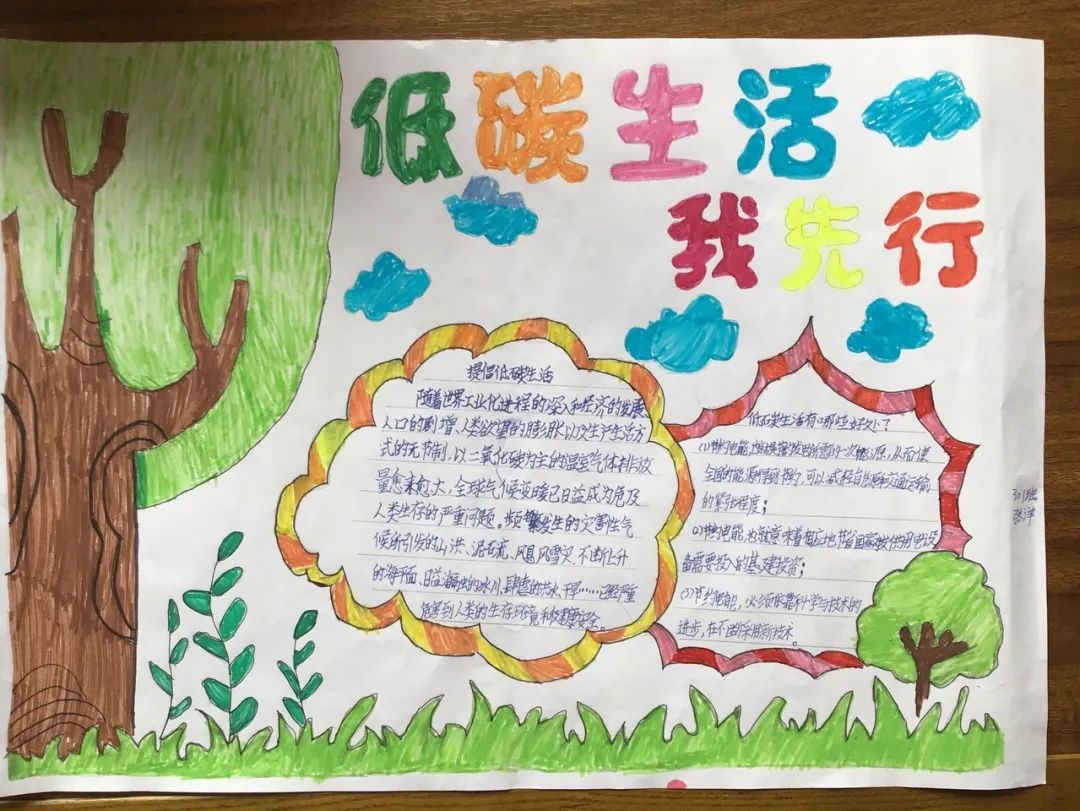 低碳生活
我先行
提倡低碳生活
随着世界工业化进程的深入和经济的发展
人口的剧增,人类欲望的膨胀以及生产生活方
式的无节制,以二氧化碳为主的温室气体排放
量愈来愈大,全球气候变暖已日益成为危及
人类生存的严重问题。频繁发生的灾害性气
候所引发的山洪、泥石流、飓风、雪灾、不断上升
的海平面、日益融蚀的冰川、肆虐的洪水、干旱……已经严重
危害到人类的生存环境和健康安全。
低碳生活有哪些好处?
(1)节约电能,
一次能源,从而使
全国的能源得到节约,可以减轻自然和交通运输
的紧张程度;
(2)节约电能,也就意味着相应地节省国家
备需要投入的基建投资;
(3)节约电能,必须依靠科学与技术的
进步,在不断采用新技术。
301班
张洋